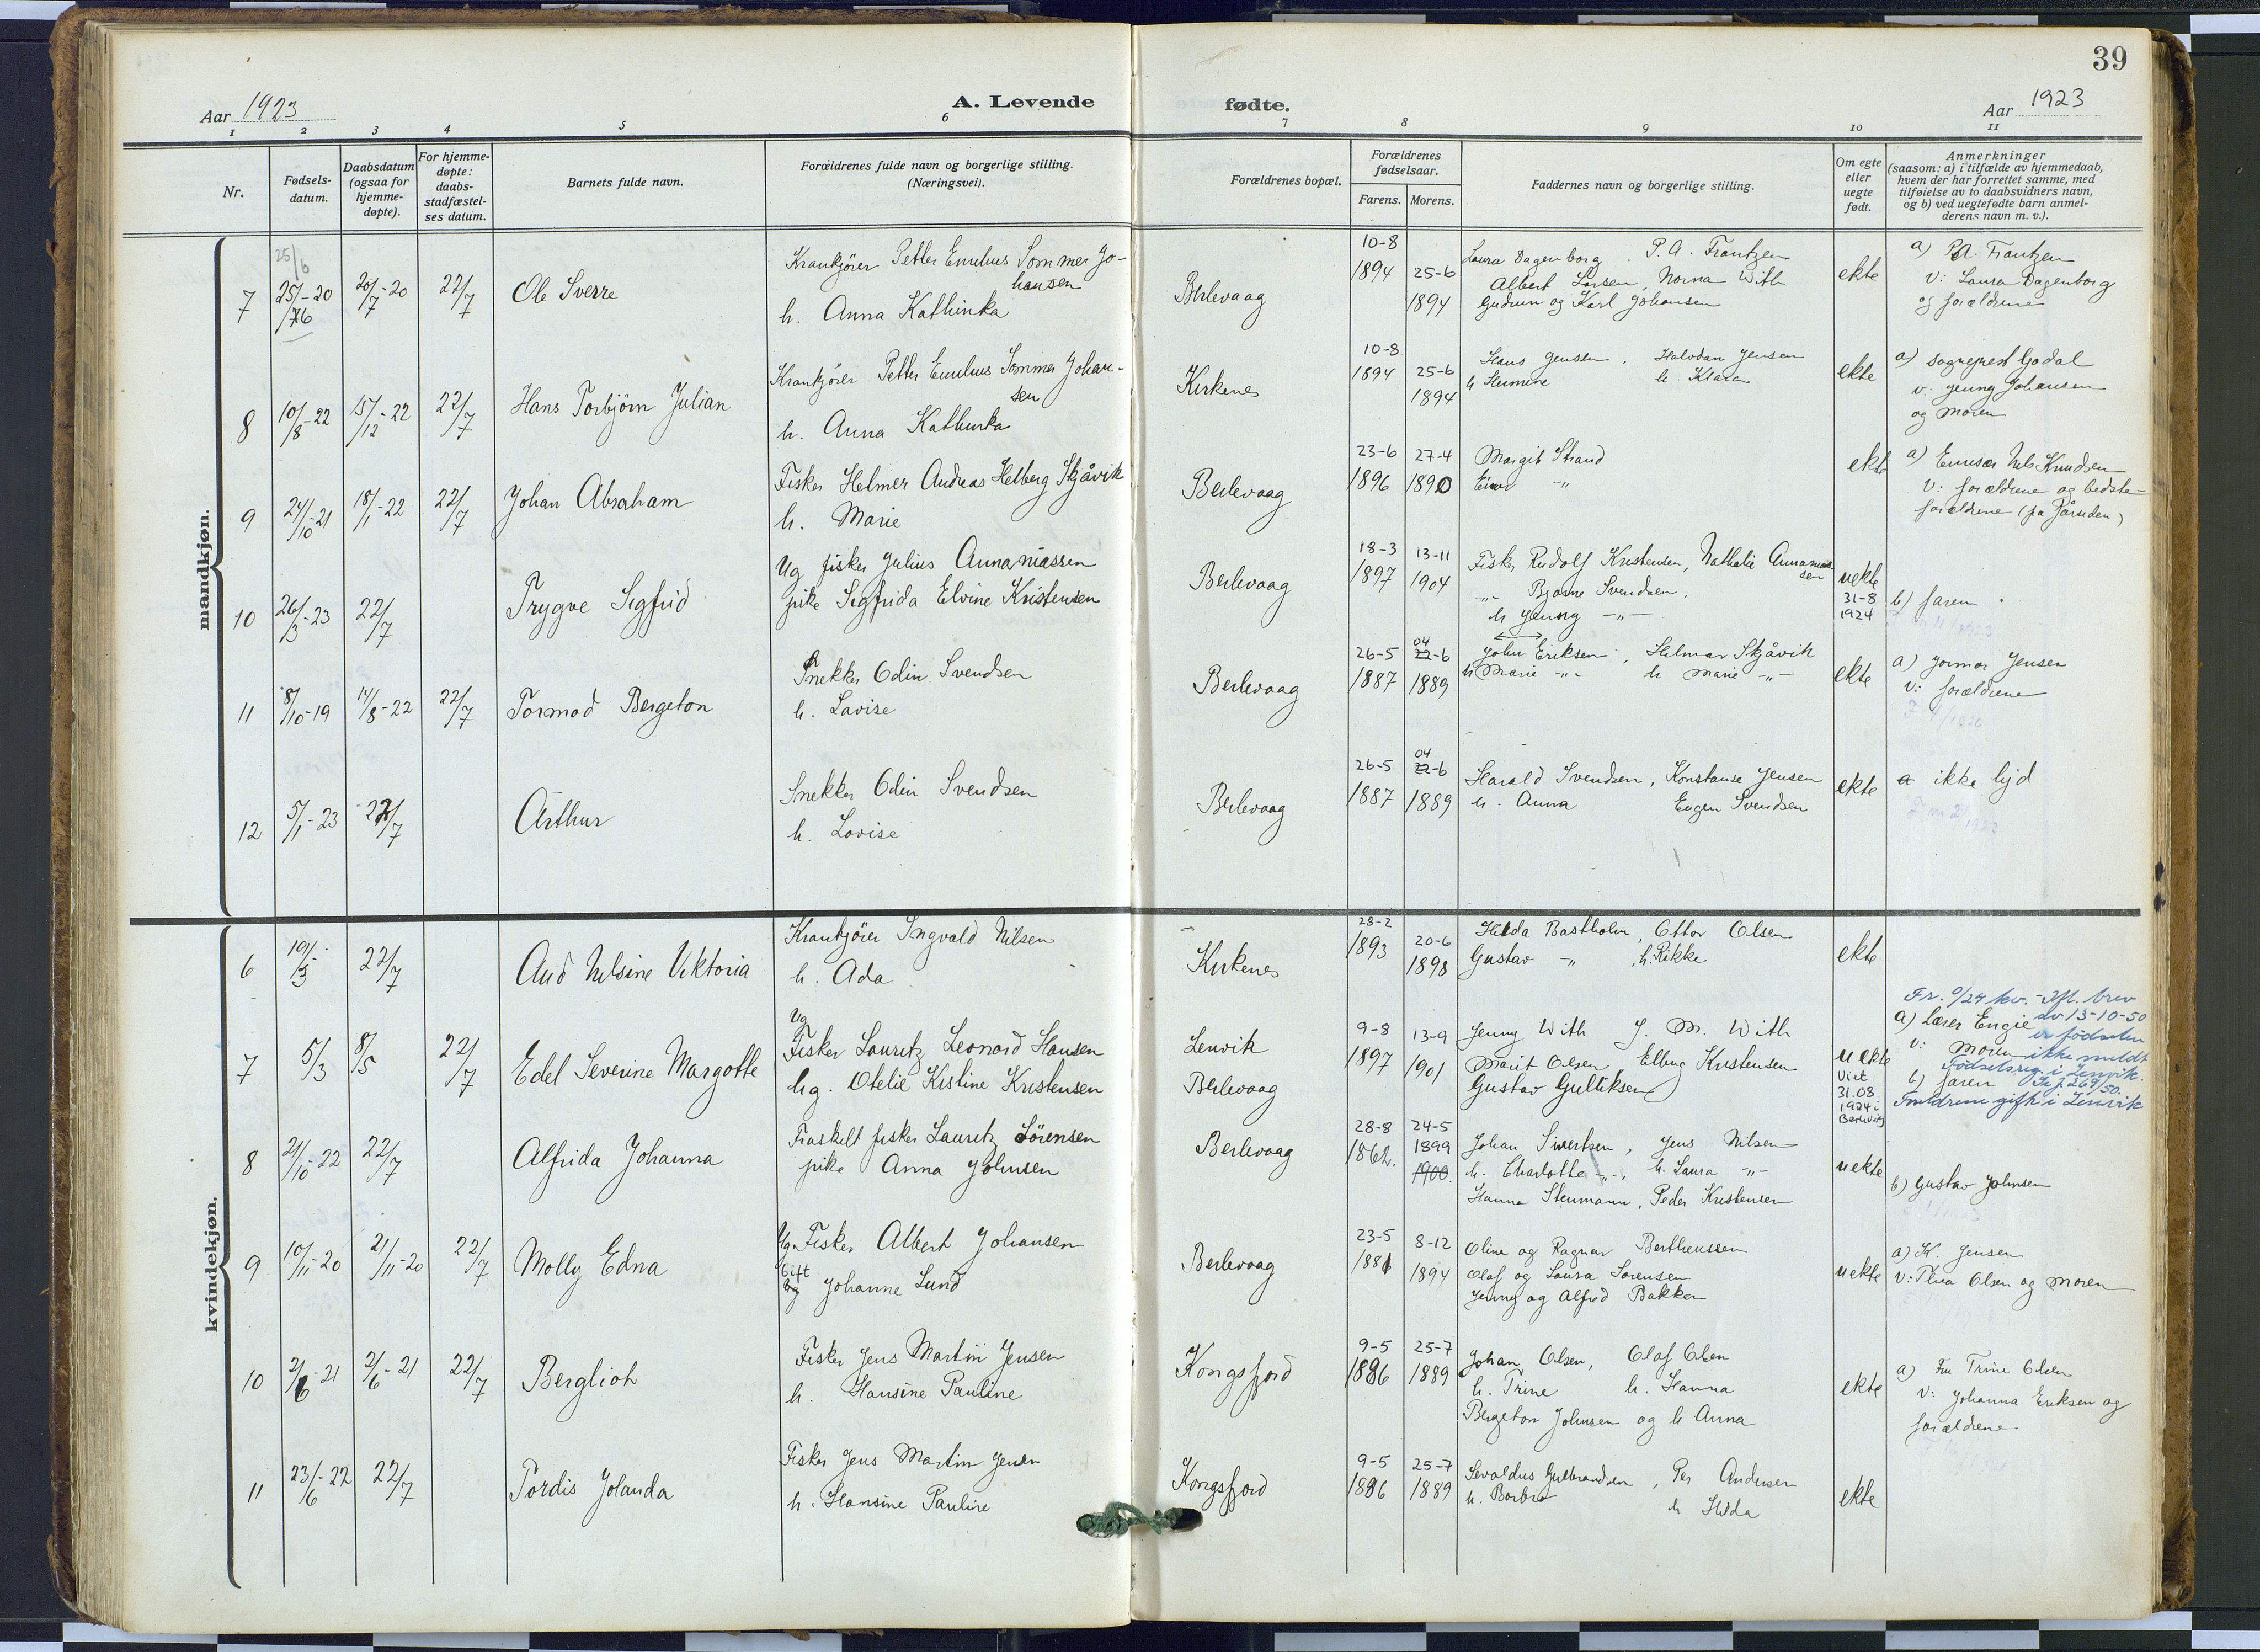 39
Aar 1923
A. Levende
fødte.
Aar 1923
1 2 3 4 5 6 7 8 9 10 11
Nr.
Fødsels-
datum.
Daabsdatum
(ogsaa for
hjemme-
døpte).
For hjemme-
døpte:
daabs-
stadfæstel-
ses datum.
Barnets fulde navn.
Forældrenes fulde navn og borgerlige stilling.
(Næringsvei).
Forældrenes bopæl.
Forældrenes
fødselsaar.
Farens. Morens.
Faddernes navn og borgerlige stilling.
Om egte
eller
uegte
født.
Anmerkninger
(saasom: a) i tilfælde av hjemmedaab,
hvem der har forrettet samme, med
tilføielse av to daabsvidners navn,
og b) ved uegtefødte barn anmel-
derens navn m. v.).
mandkjøn.
25/6
7 25/-20 /76 20/7-20 22/7 Ole Sverre
Krankjører Petter Emilius Sommer Jo-
hansen
h. Anna Kathinka
Berlevaag
10-8
1894 25-6
1894
Laura Dagenborg. P. A. Frantzen
Albert Larsen, Norna With
Gudrun og Karl Johansen
ekte
a) P.A. Frantzen
v: Laura Dagenborg
og forældrene
8 10/8-22 15/12-22 22/7 Hans Torbjørn Julian
Krankjører Petter Emilius Sommer Johan-
sen
h. Anna Kathinka
Kirkenes
10-8
1894 25-6
1894
Hans Jensen, Halvdan Jensen
h Hermine h. Klara
ekte
a) sogneprest Godal
v: Jenny Johansen
og moren
9 24/10-21 18/1-22 22/7 Johan Abraham
Fisker Helmer Andreas Helberg Skjåvik
h. Marie
Berlevaag
23-6 27-4
1896 1890
Margit Strand
Einar -"-
ekte
a) Emissær Nils Knudsen
v: forældrene og bedste-
forældrene (pa farsiden)
10 26/3-23 22/7 Trygve Sigfrid
Ug fisker Julius Annaniassen
pike Sigfrida Elvine Kristensen
Berlevaag
18-3 13-11
1897 1904
Fisker Rudolf Kristensen, Nathalie Annanias-
sen
-"- Bjarne Svendsen,
h Jenny -"-
uekte
31-8
1924
b) faren
11 8/10-19 14/8-22 22/7 Tormod Bergeton
Snekker Odin Svendsen
h. Lovise
Berlevaag
04
26-5 22-6
1887 1889
John Eriksen, Helmar Skjåvik
h Marie -"- h Marie -"-
ekte
a) Jormor Jensen
v: forældrene
12 5/1-23 22/7 Arthur
Snekker Odin Svendsen
h. Lovise
Berlevaag
04
26-5 22-6
1887 1889
Harald Svendsen, Konstanse Jensen
h. Anna Eugen Svendsen
ekte
a ikke hjd
kvindekjøn.
6 19/3 22/7 Aud Nilsine Viktoria
Krankjører Ingvald Nilsen
h. Ada
Kirkenes
28-2
1893 20-6
1898
Hilda Bastholm, Ottar Olsen
Gustav -"- h. Rikke
ekte
7 5/3 8/5 22/7 Edel Severine Margothe
Ug
Fisker Lauritz Leonard Hansen
Ug. Otelie Kistine Kristensen
Lenvik
Berlevaag
9-8 13-9
1897 1901
Jenny With J. M. With
Marit Olsen Elbug Kristensen
Gustav Gulliksen
uekte
Viet
31.08
1924 i
Berlevåg
Fr. 9/24 kv. - Ifl. brev
av 13-10-50
a) Lærer Engie er fødselen
v: moren ikke meldt
Fødselsreg. i Lenvik.
b) faren Se j. 269/50.
Foreldrene gift i Lenvik
8 21/10-22 22/7 Alfrida Johanna
Fraskilt fisker Lauritz Sörensen
pike Anna Johnsen
Berlevaag
28-8 24-5
1862. 1899
1900.
Johan Sivertsen, Jens Nilsen
h. Charlotte -"- h. Laura -"-
Hanna Stenmann, Peder Kristensen
uekte
b) Gustav Johnsen
9 10/11-20 21/11-20 22/7 Molly Edna
Ug. Fisker Albert Johansen
Gift
Ug Johanne Lund
Berlevaag
23-5 8-12
1881 1894
Oline og Ragnar Bertheussen
Olaf og Laura Sorensen
Jenny og Alfred Bakken
uekte
a) K. Jensen
v: Thea Olsen og moren
10 2/6-21 2/6-21 22/7 Bergliot
Fisker Jens Martin Jensen
h. Hansine Pauline
Kongsfjord
9-5 25-7
1886 1889
Johan Olsen, Olaf Olsen
h. Trine h. Hanna
Bergeton Johnsen og h Anna
ekte
a) Fru Trine Olsen
v: Johanna Eriksen og
forældrene
11 23/6-22 22/7 Tordis Jolanda
Fisker Jens Martin Jensen
h. Hansine Pauline
Kongsfjord
9-5 25-7
1886 1889
Sevaldus Gulbrandsen, Per Andersen
h. Borbro h Hilda
ekte